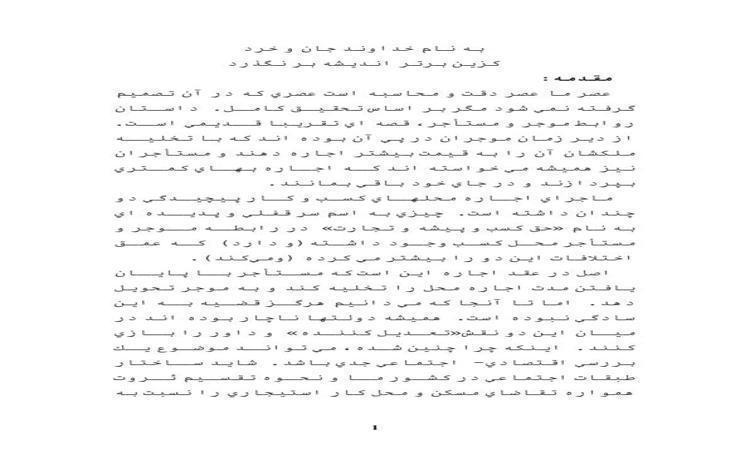 به نام خداوند جان و خرد
کزین برتر اندیشه بر نگذرد
مقدمه :
عصر ما عصر دقت و محاسبه است عصري كه در آن تصميم
گرفته نمي شود مگر بر اساس تحقيق كامل. داستان
روابط موجر و مستأجر، قصه اي تقريبا قديمي است.
از دير زمان موجران در پي آن بوده اند كه با تخليه
ملكشان آن را به قيمت بيشتر اجاره دهند و مستأجران
نيز هميشه مي خواسته اند كه اجاره بهاي كمتري
بپردازند و در جاي خود باقي بمانند.
ماجراي اجاره محلهاي كسب و كار پيچيدگي دو
چندان داشته است. چيزي به اسم سرقفلي و پديده اي
به نام «حق كسب و پيشه و تجارت» در رابطه موجر و
مستأجر محل كسب وجود داشته (و دارد) كه عمق
اختلافات اين دو را بيشتر مي كرده (ومي‌كند).
اصل در عقد اجاره اين است كه مستأجر با پايان
يافتن مدت اجاره محل را تخليه كند و به موجر تحويل
دهد. اما تا آنجا كه مي دانيم هرگز قضيه به اين
سادگي نبوده است. هميشه دولتها ناچار بوده اند در
ميان اين دو نقش«تعديل كننده» و داور را بازي
كنند. اينكه چرا چنين شده، مي تواند موضوع يك
بررسي اقتصادي- اجتماعي جدي باشد. شايد ساختار
طبقات اجتماعي در كشور ما و نحوه تقسيم ثروت
همواره تقاضاي مسكن و محل كار استيجاري را نسبت به
1